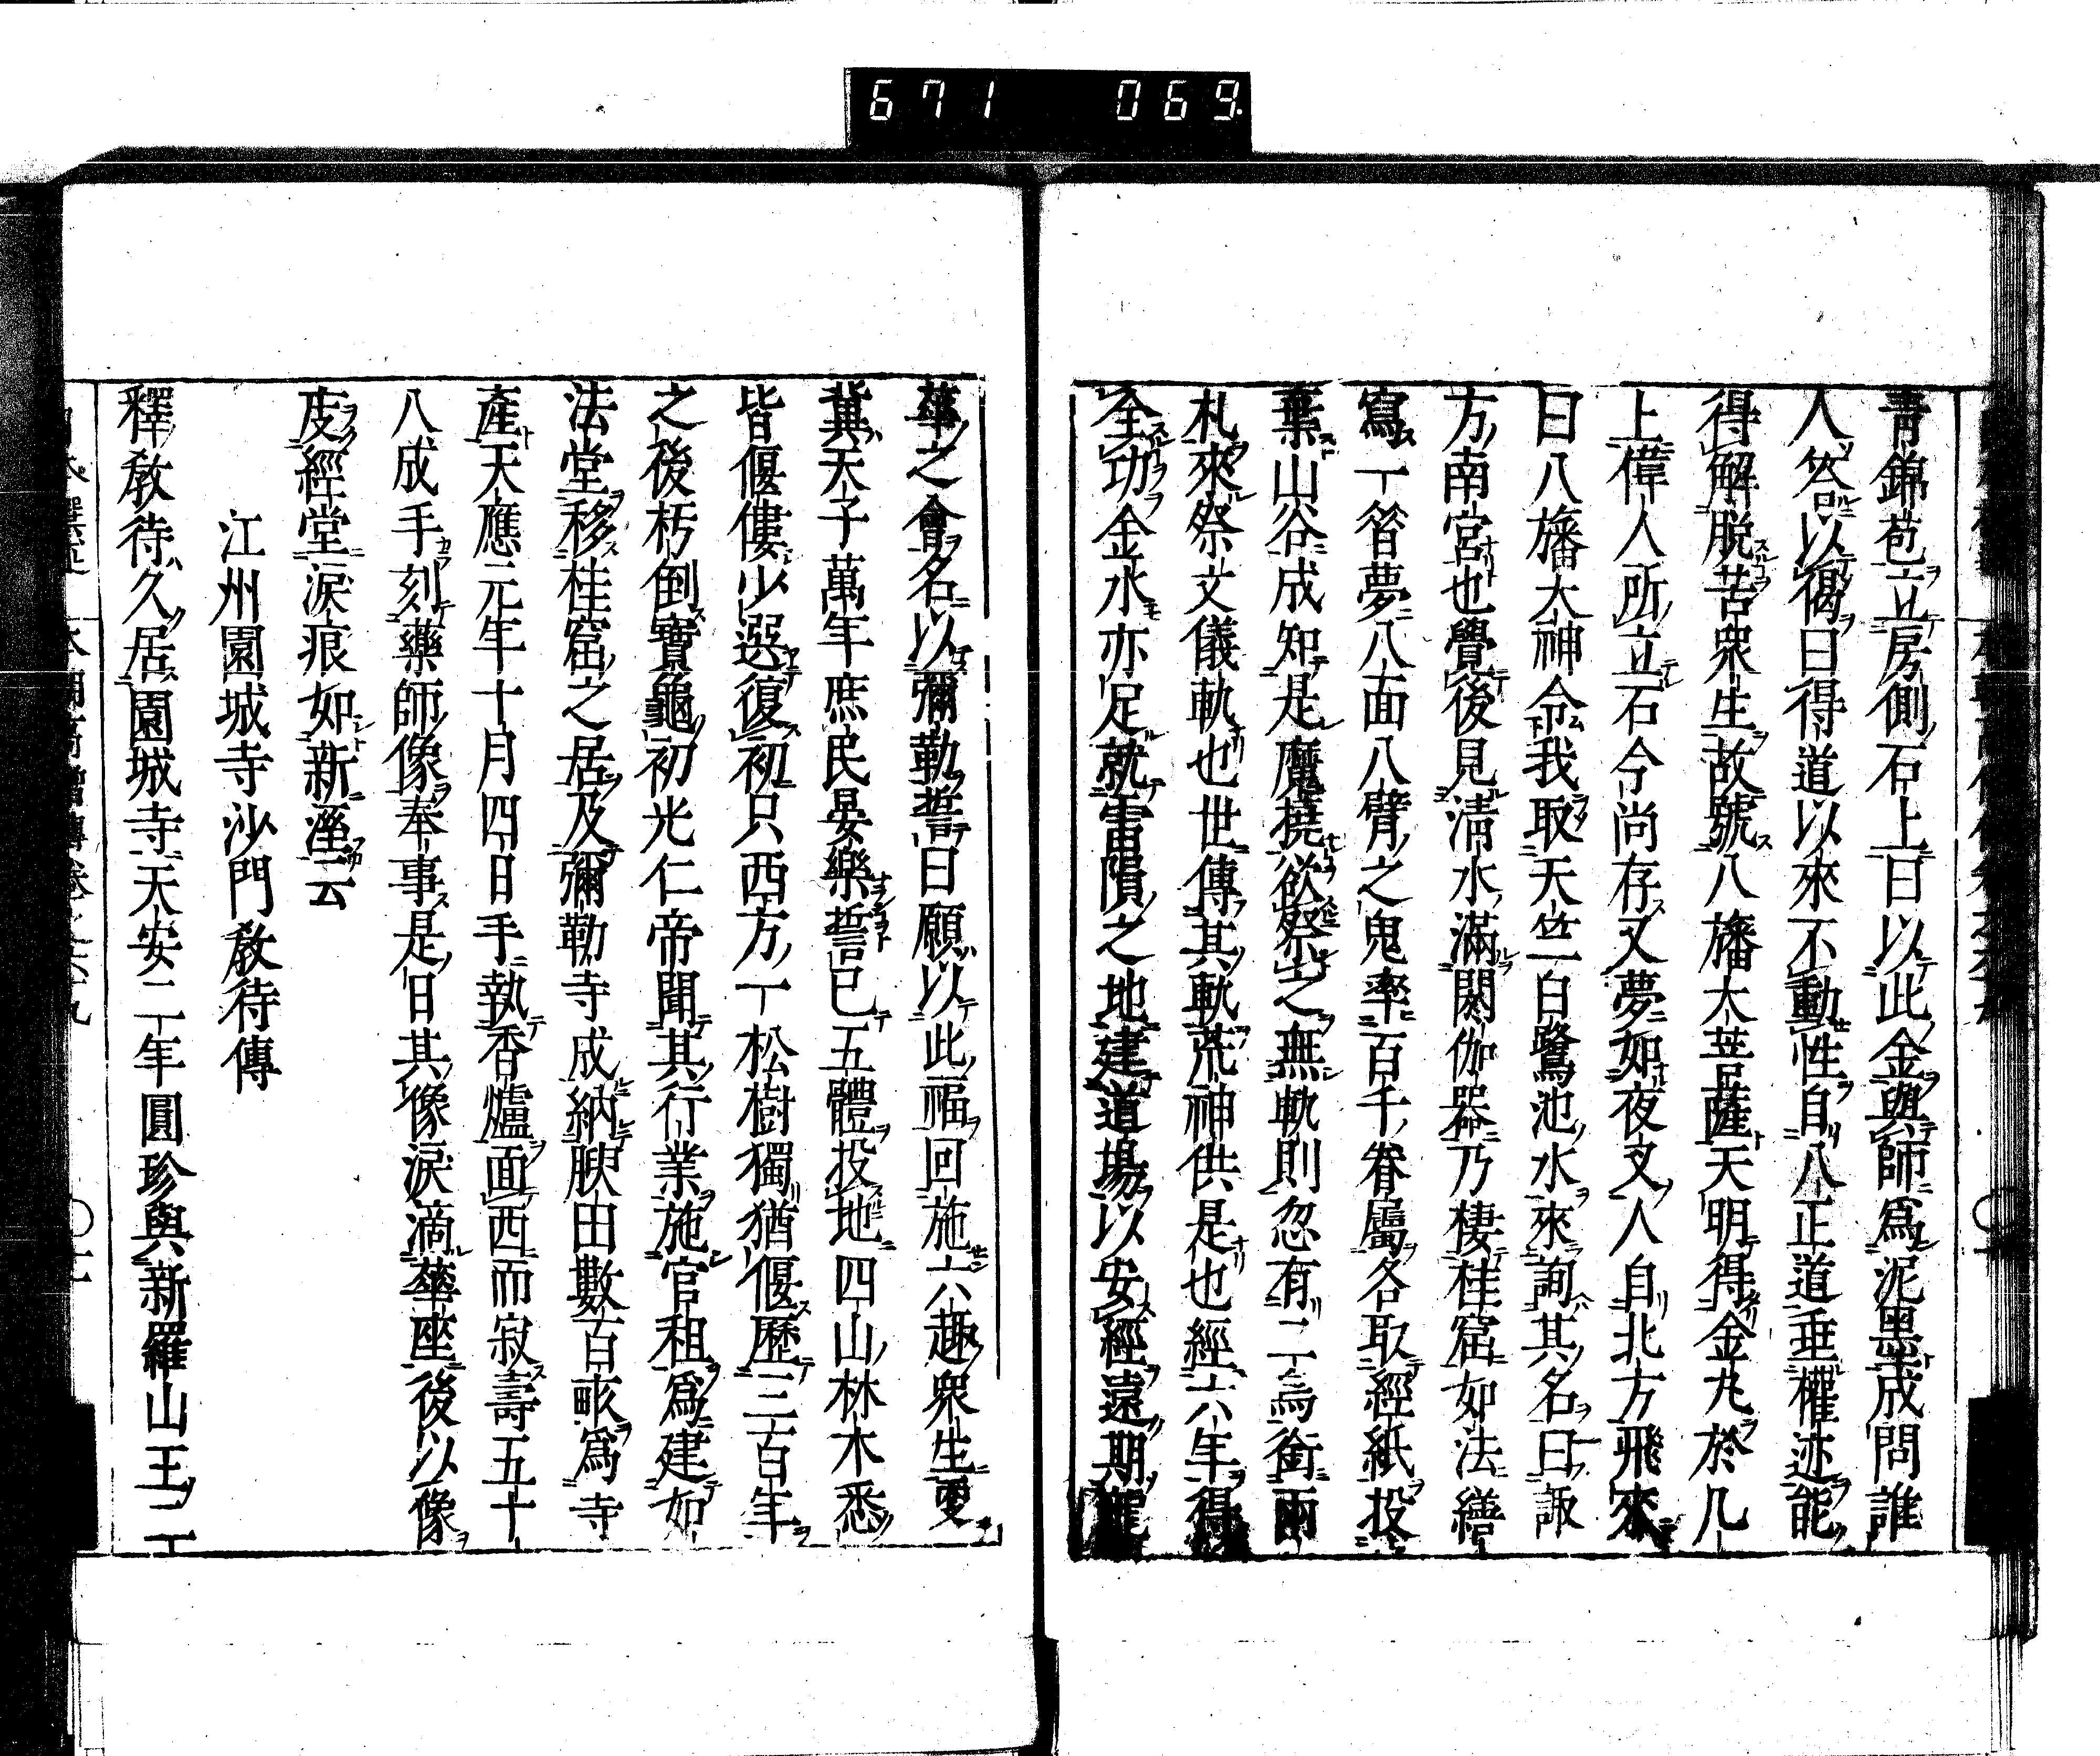 671 069
青錦苞立房側石上曰以此金與師爲泥墨成問誰
人答以偈曰得道以來不動性自八正道垂權迹能
得解脱苦衆生故號八旛大菩薩天明得金丸於几
上偉人所立石今尚存又夢如夜叉人自北方飛來
曰八旛大神令我取天竺白鷺池水來詢其名曰諏
方南宮也覺後見清水滿閼伽器乃棲桂窟如法繕
寫一誊夢八面八臂之鬼率百千眷屬各取經紙投
棄山谷成知是魔撓欲祭之無軌則忽有二烏銜兩
札來祭文儀軌也世傳其軌荒神供是也經六年得
全功金水亦足就雷隕之地建道場以安經遠期龍
華之會名以彌勒誓曰願以此福回施六趣衆生更
冀天子萬年庶民晏樂誓已五體投地四山林木悉
皆偃僂少選復初只西方一松樹獨猶偃歷三百年
之後朽倒寶龜初光仁帝聞其行業施官租爲建如
法堂移桂窟之居及彌勒寺成納腴田數百畝爲寺
產天應元年十月四日手執香爐面西而寂壽五十
八成手刻藥師像奉事是日其像淚滴華座後以像
庋經堂淚痕如新溼云
江州園城寺沙門敎待傳
釋敎待久居園城寺天安二年圓珍與新羅山王二